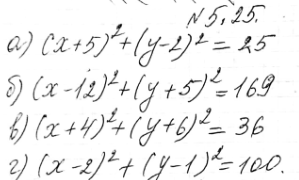 № 5.25.
а) (x+5)²+(y-2)²=25
б) (x-12)²+(y+5)²=169
в) (x+4)²+(y+6)²=36
г) (x-2)²+(y-1)²=100.